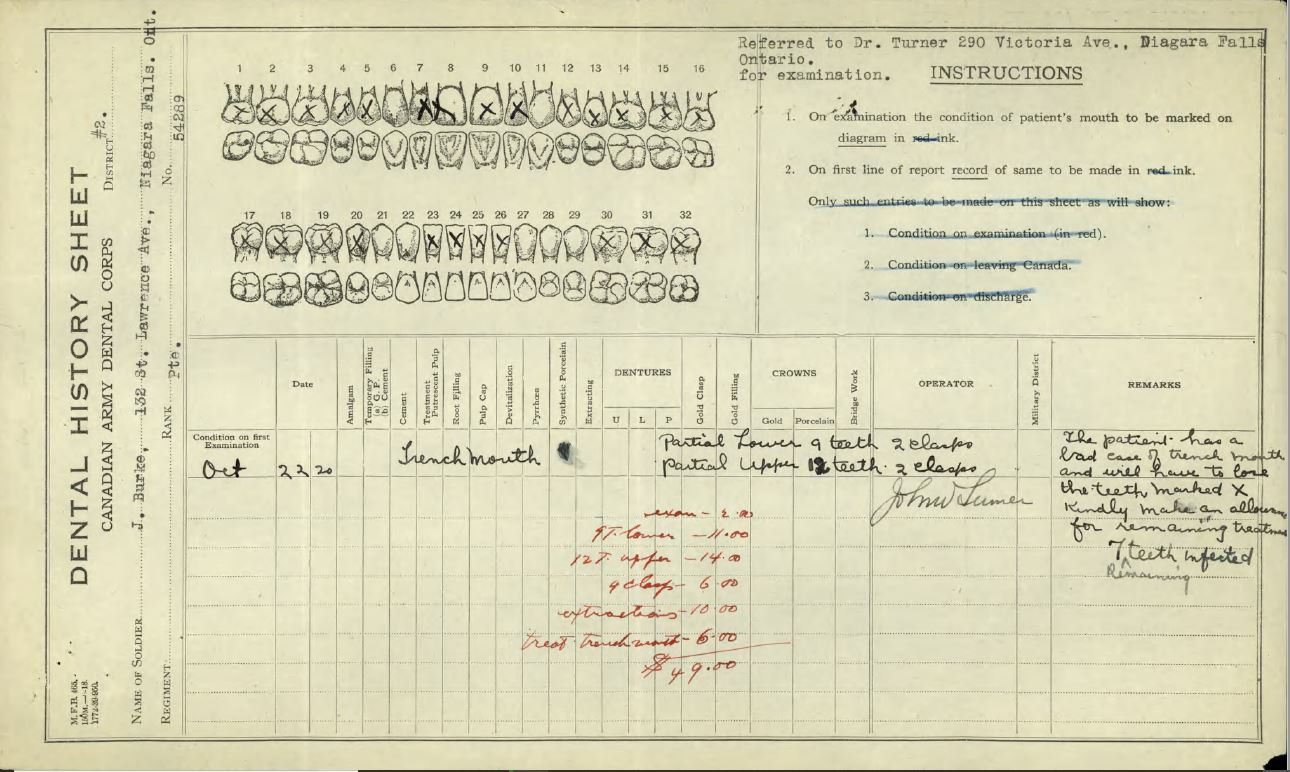 DENTAL HISTORY SHEET
CANADIAN ARMY DENTAL CORPS DISTRICT #2.
NAME OF SOLDIER. J. Burke, 132 St. Lawrence Ave., Niagara Falls. Ont.
REGIMENT RANK Pte. No. 54289
M.F.B. 465.
1 2 3 4 5 6 7 8 9 10 11 12 13 14 15 16
17 18 19 20 21 22 23 24 25 26 27 28 29 30 31 32
Referred to Dr. Turner 290 Victoria Ave., Niagara Falls
Ontario.
for examination. INSTRUCTIONS
1. On examination the condition of patient's mouth to be marked on
diagram in red ink.
2. On first line of report record of same to be made in red ink.
Only such entries to be made on this sheet as will show:
1. Condition on examination (in red).
2. Condition on leaving Canada.
3. Condition on discharge.
Date
Amalgam
Temporary Filling
(a) G. P.
(b) Cement
Cement
Treatment
Putrescent Pulp
Root Filling
Pulp Cap
Devitalization
Pyrrhœa
Synthetic Porcelain
Extracting
DENTURES
U L P
Gold Clasp
Gold Filling
CROWNS
Gold Porcelain
Bridge Work
OPERATOR
Military District
REMARKS
Condition on first
Examination
Oct 22 20 Trench mouth
Partial Lower 9 teeth 2 clasps
Partial Upper 12 teeth. 2 clasps
John W Turner
The patient has a
bad case of trench mouth
and will have to lose
the teeth marked X
Kindly make an allowance
for remaining treatment
7 teeth infected
Remaining
exam - 2.00
9 T. lower - 11.00
12 T. upper - 14.00
4 clasp - 6.00
extractions - 10.00
treat trench mouth - 6.00
$49.00